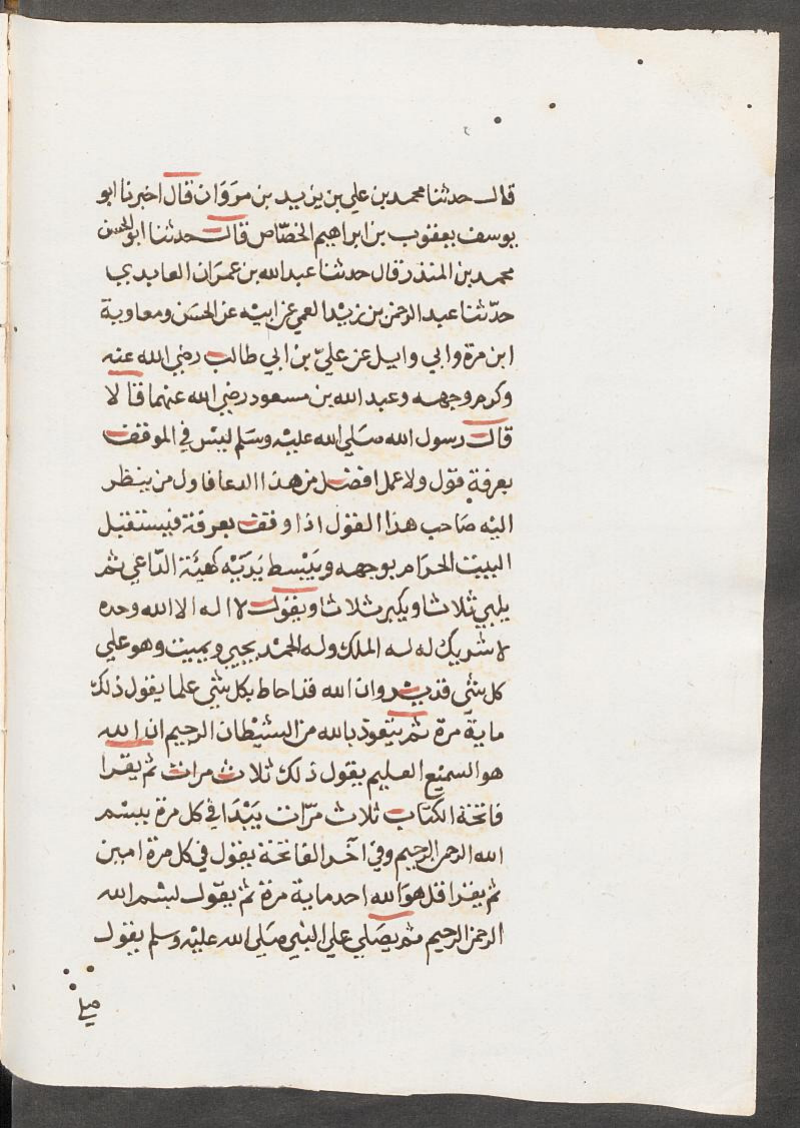 قال حدثنا محمد بن علي بن يزيد بن مروان قال اخبرنا ابو
يوسف يعقوب بن ابراهيم الخصّاص قال حدثنا ابو الحسن
محمد بن المنذر قال حدثنا عبد الله بن عمران العابدي
حدّثنا عبد الرحمن بن زيد العمي عن ابيه عن الحسن ومعاوية
ابن مرة وابي وايل عن عليّ بن ابي طالب رضي الله عنه
وكرم وجهه وعبد الله بن مسعود رضي الله عنهما قالا
قال رسول الله صلي الله عليه وسلم ليس في الموقف
بعرفة قول ولا عمل افضل من هذا الدعا فاول من ينظر
اليه صاحب هذا القول اذا وقف بعرفة فيستقبل
البيت الحرام بوجهه ويبسط يديه كهيئة الدّاعي ثم
يلبي ثلاثا ويكبر ثلاثا ويقول لا اله الا الله وحده
لا شريك له له الملك وله الحمد يحيي ويميت وهو علي
كل شي قدير وان الله قد احاط بكل شي علما يقول ذلك
ماية مرّة ثم يتعوذ بالله من الشيطان الرجيم ان الله
هو السميع العليم يقول ذلك ثلاث مرات ثم يقرا
فاتحة الكتاب ثلاث مرّات يبدا في كل مرة ببسم
الله الرحمن الرحيم وفي آخر الفاتحة يقول في كل مرة امين
ثم يقرا قل هو الله احد ماية مرة ثم يقول بسم الله
الرحمن الرحيم ثم يصلي علي النبي صلي الله عليه وسلم يقول